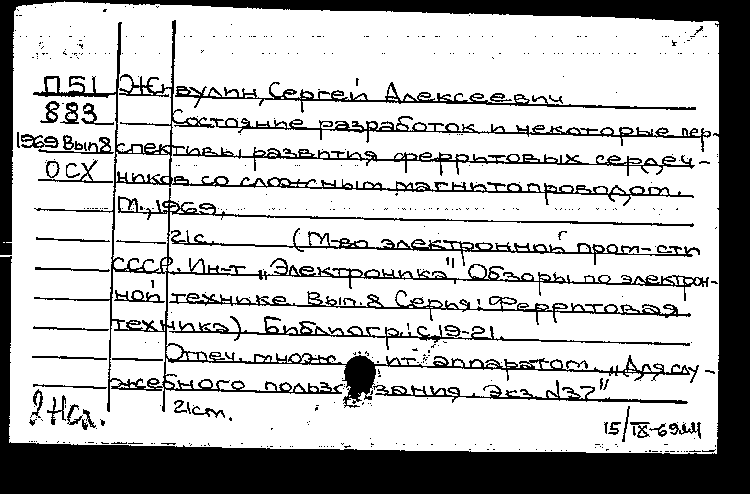 П51 Живулин, Сергей Алексеевич
883 Состояние разработок и некоторые пер-
1969 Вып8 спективы развития ферритовых сердеч-
ОСХ ников со сложным магнитопроводом.
М., 1969,
21с. (М-во электронной пром-сти
СССР. Ин-т „Электроника", Обзоры по электрон-
ной технике. Вып.8 Серия: Ферритовая
техника). Библиогр.: с.19-21.
Отпеч. множ ит. аппаратом. „Для слу-
жебного пользования. Экз. №37"
21см.
15/IX-69